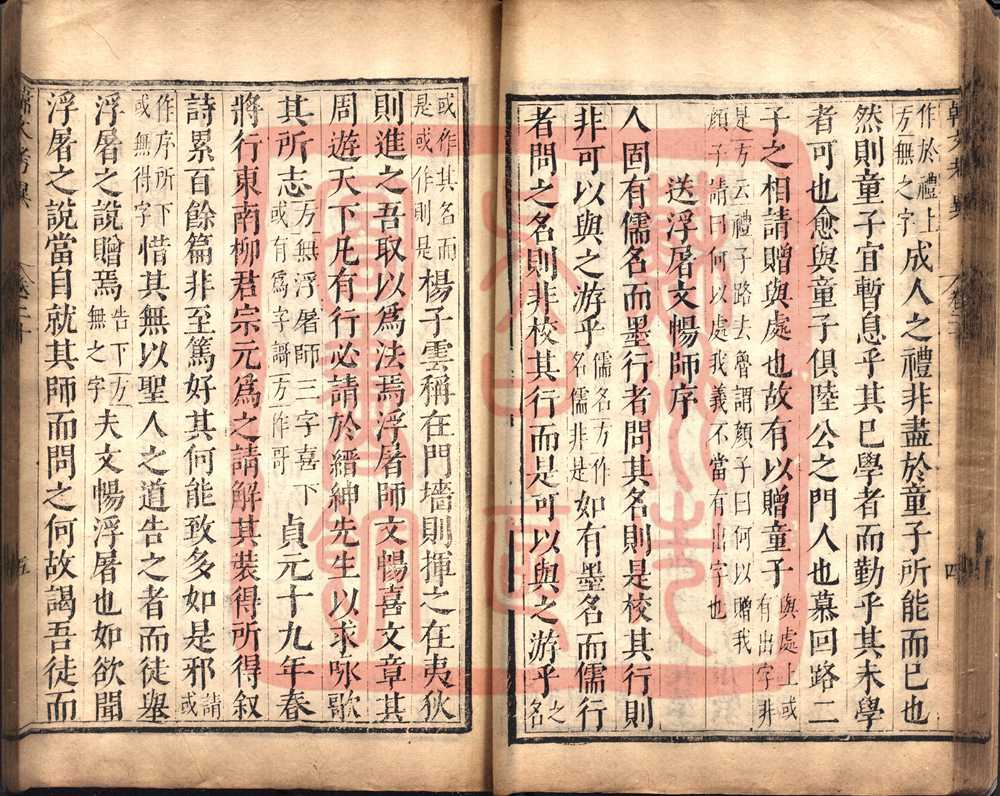 作於禮上方無之字成人之禮非盡於童子所能而已也
然則童子宜暫息乎其已學者而勤乎其未學
者可也愈與童子俱陸公之門人也慕回路二
子之相請贈與處也故有以贈童子與處上或有出字非
是方云禮子路去魯謂顏子曰何以贈我
顏子請曰何以處我義不當有出字也
送浮屠文暢師序
人固有儒名而墨行者問其名則是校其行則
非可以與之游乎儒名方作名儒非是如有墨名而儒行
者問之名則非校其行而是可以與之游乎之名
或作其名而是或作則是楊子雲稱在門墻則揮之在夷狄
則進之吾取以爲法焉浮屠師文暢喜文章其
周遊天下凡有行必請於縉紳先生以求咏歌
其所志方無浮屠師三字喜下或有爲字謌方作哥貞元十九年春
將行東南柳君宗元爲之請解其裝得所得叙
詩累百餘篇非至篤好其何能致多如是邪請或
作序所下或無得字惜其無以聖人之道告之者而徒舉
浮屠之說贈焉告下方無之字夫文暢浮屠也如欲聞
浮屠之說當自就其師而問之何故謁吾徒而
韓文考異
卷二
四
五